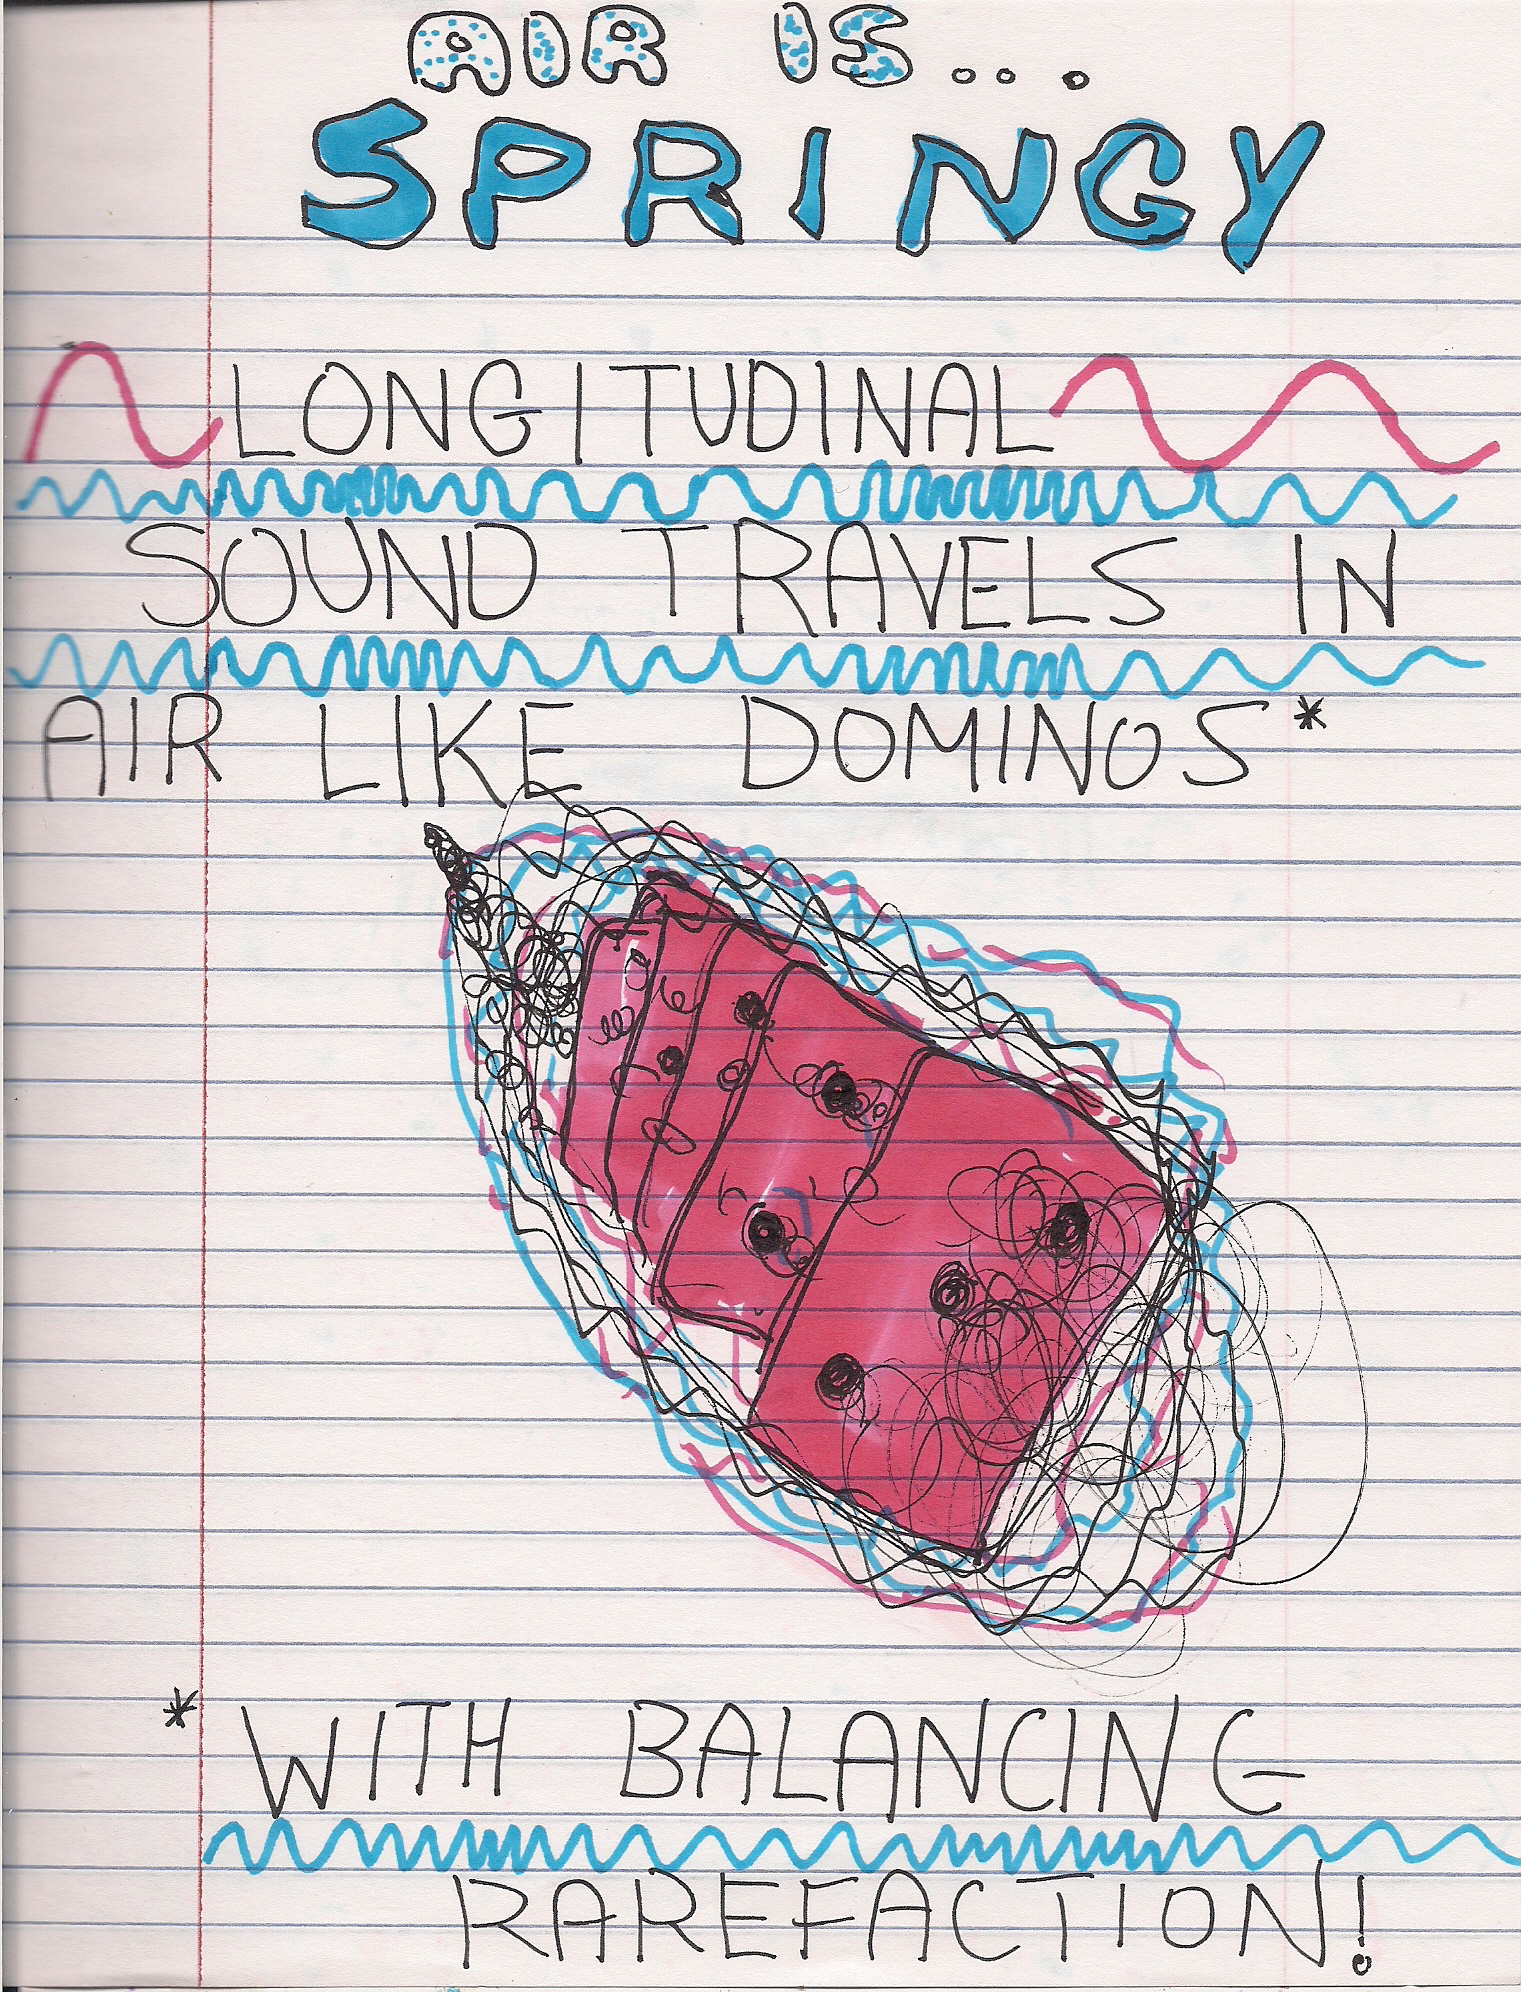 AIR IS...
SPRINGY
LONGITUDINAL
SOUND TRAVELS IN
AIR LIKE DOMINOS*
*WITH BALANCING
RAREFACTION!